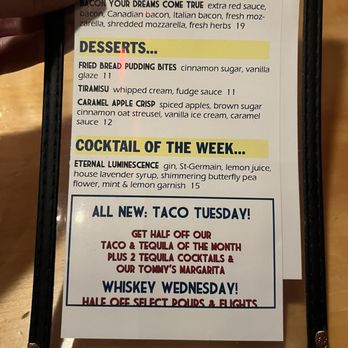 BACON YOUR DREAMS COME TRUE extra red sauce,
bacon, Canadian bacon, Italian bacon, fresh moz-
zarella, shredded mozzarella, fresh herbs 19
DESSERTS...
FRIED BREAD PUDDING BITES cinnamon sugar, vanilla
glaze 11
TIRAMISU whipped cream, fudge sauce 11
CARAMEL APPLE CRISP spiced apples, brown sugar
cinnamon oat streusel, vanilla ice cream, caramel
sauce 12
COCKTAIL OF THE WEEK...
ETERNAL LUMINESCENCE gin, St-Germain, lemon juice,
house lavender syrup, shimmering butterfly pea
flower, mint & lemon garnish 15
ALL NEW: TACO TUESDAY!
GET HALF OFF OUR
TACO & TEQUILA OF THE MONTH
PLUS 2 TEQUILA COCKTAILS &
OUR TOMMY'S MARGARITA
WHISKEY WEDNESDAY!
HALF OFF SELECT POURS & FLIGHTS